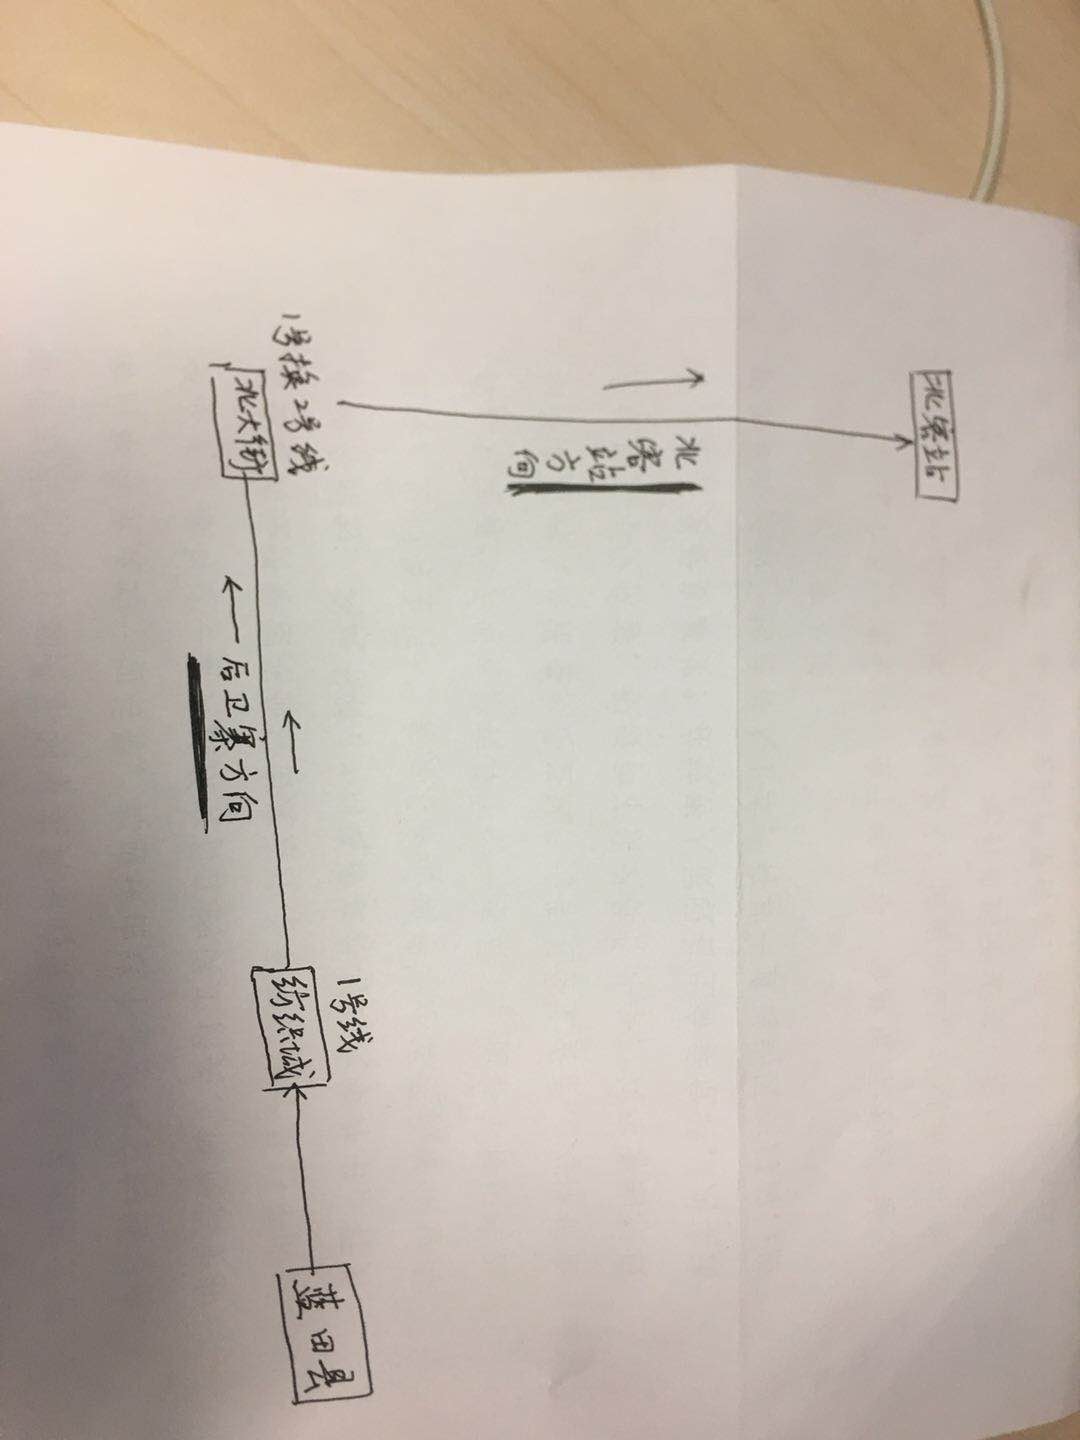 北客站
北客站方向
1号换2号线
北大街
后卫寨方向
1号线
纺织城
蓝田县